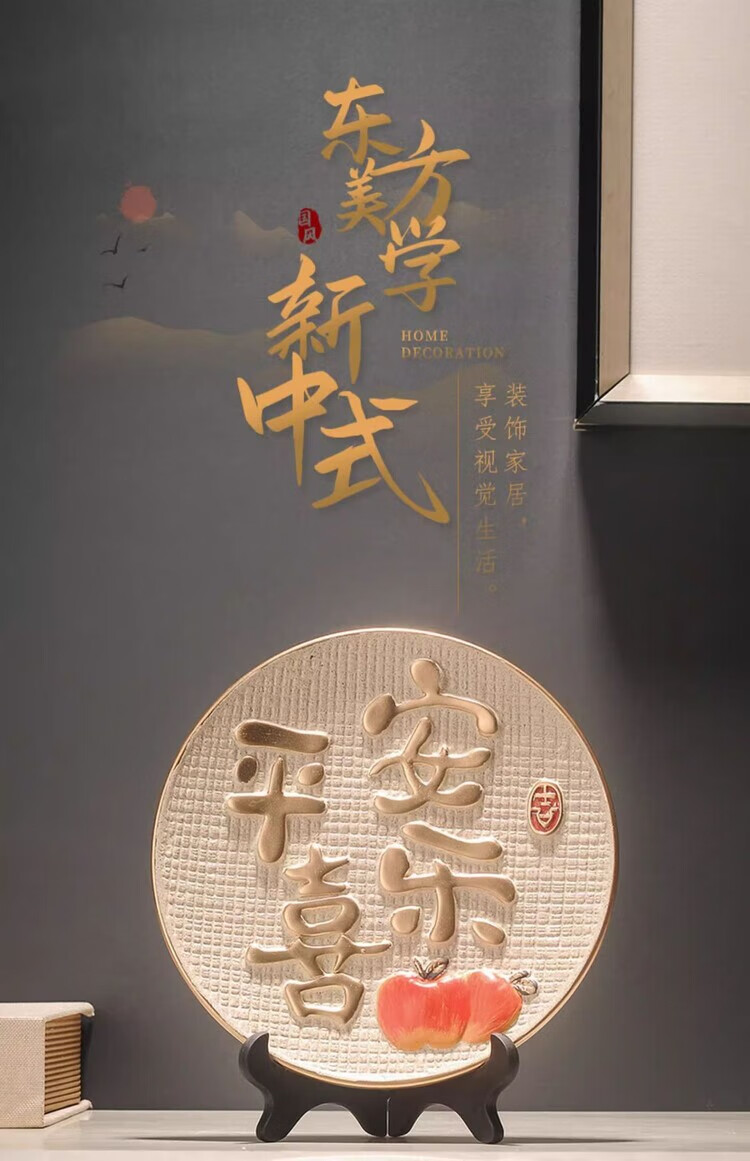 东方
美学
国风
新中式
HOME
DECORATION
装饰家居，
享受视觉生活。
平安
喜乐